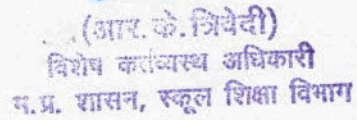 (आर. के. त्रिवेदी)
विशेष कर्तव्यस्थ अधिकारी
म.प्र. शासन, स्कूल शिक्षा विभाग